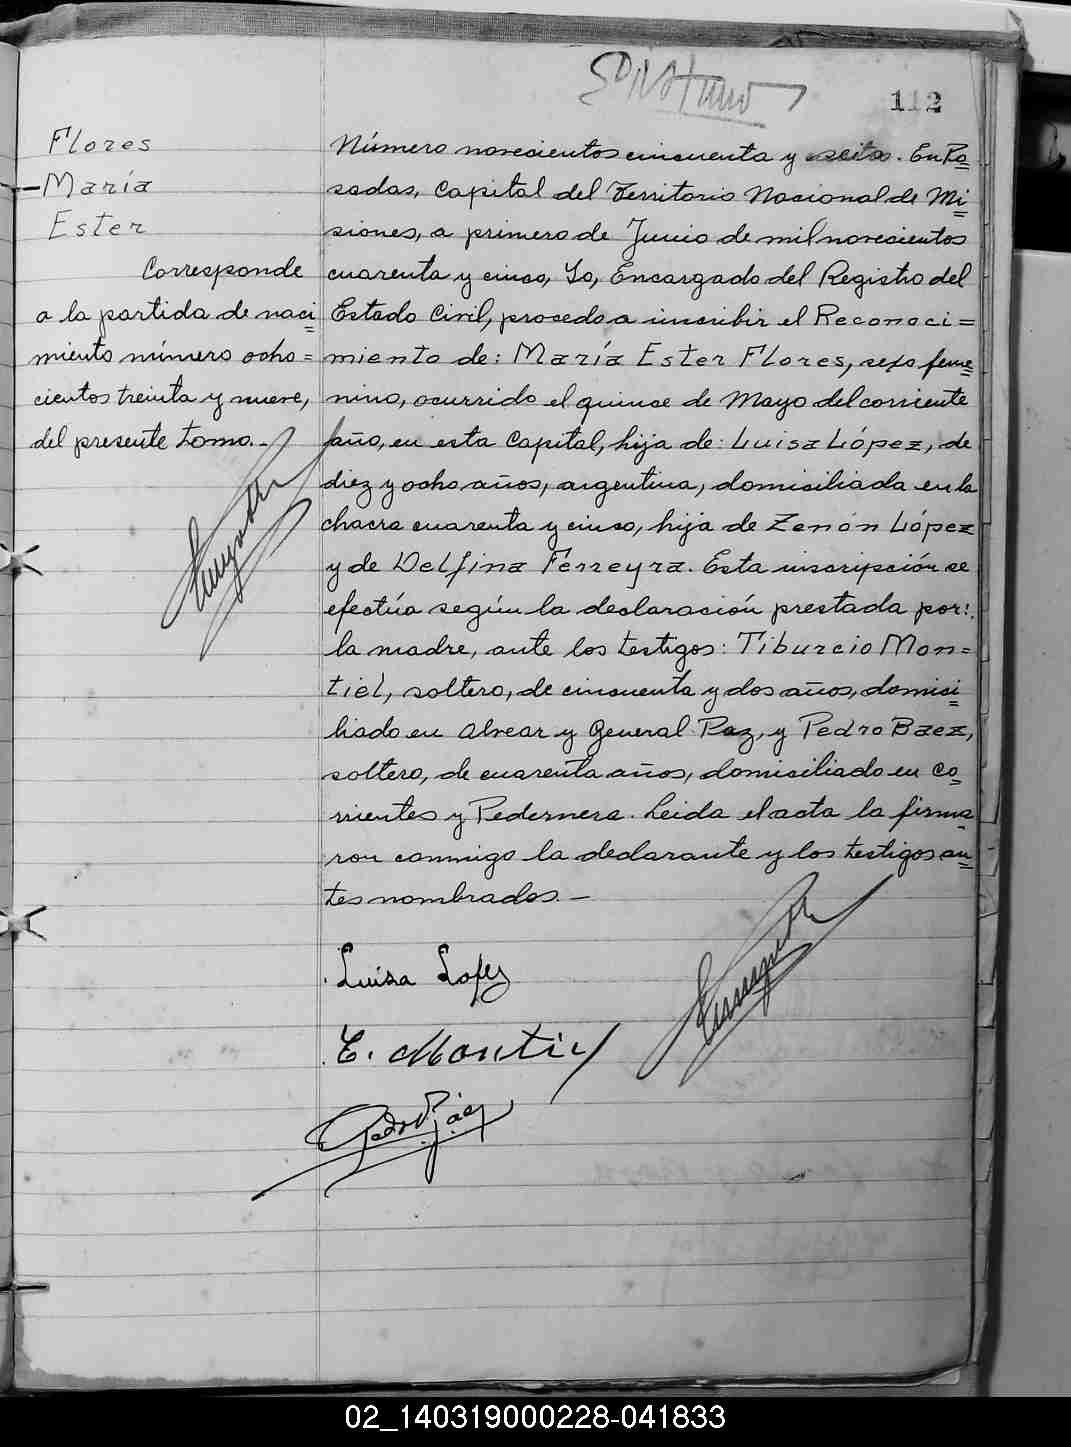 112
Flores
María
Ester
Corresponde
a la partida de naci=
miento número ocho=
cientos treinta y nueve,
del presente tomo.-
Número novecientos cincuenta y . En Po=
sadas, Capital del Territorio Nacional de Mi=
siones, a primero de Junio de mil novecientos
cuarenta y cinco, Yo, Encargado del Registro del
Estado Civil, procedo a inscribir el Reconoci=
miento de: María Ester Flores, sexo feme=
nino, ocurrido el quince de Mayo del corriente
año, en esta Capital, hija de: Luisa López, de
diez y ocho años, argentina, domiciliada en la
chacra cuarenta y cinco, hija de Zenón López
y de Delfina Ferreyra. Esta inscripción se
efectúa según la declaración prestada por:
la madre, ante los testigos: Tiburcio Mon=
tiel, soltero, de cincuenta y dos años, domici=
liado en Alvear y General Paz, y Pedro Baez,
soltero, de cuarenta años, domiciliado en Co=
rrientes y Pedernera. Leida el acta la firma=
ron conmigo la declarante y los testigos an=
tes nombrados.-
Luisa Lopez
T. Montiel
Pedro Báez
02_140319000228-041833